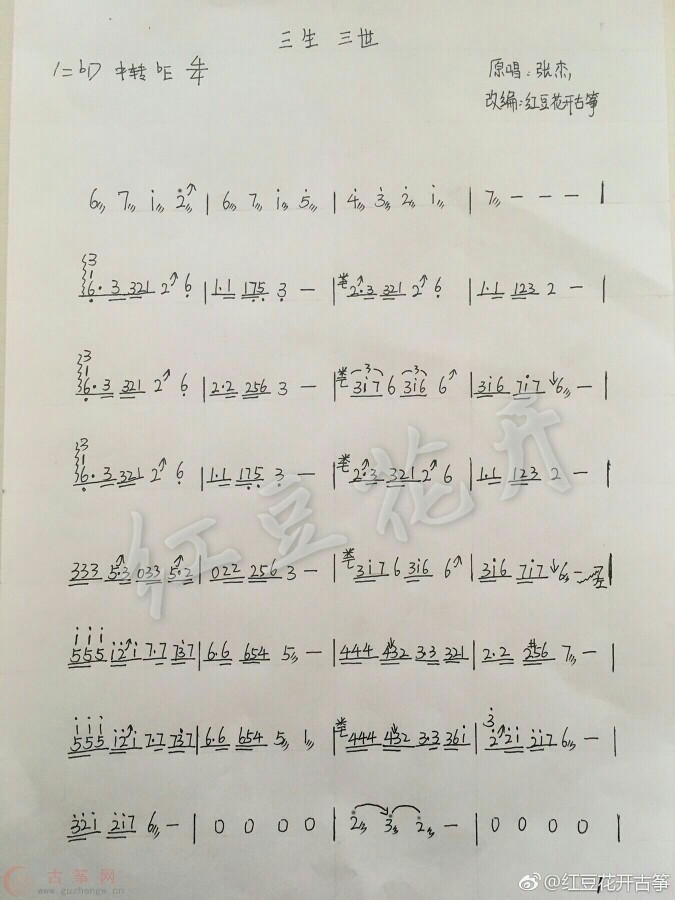 三生 三世
1=♭D 中转 ♭E 4/4
原唱：张杰
改编：红豆花开古筝
6 7 i 2↗ | 6 7 i 5 | 4 3 2 i | 7 — — — |
3 1 6· 3 321 2↗ 6 | 1·1 175 3 — | 2↗·3 321 2↗ 6 | 1·1 123 2 — |
3 1 6· 3 321 2↗ 6 | 2·2 256 3 — | 3i7 6 3i6 6↗ | 3i6 7i7 ↓6 — |
3 1 6· 3 321 2↗ 6 | 1·1 175 3 — | 2↗·3 321 2↗ 6 | 1·1 123 2 — |
333 5↗·3 033 5↗·2 | 022 256 3 — | 3i7 6 3i6 6↗ | 3i6 7i7 ↓6 — |
i i i
555 i2↗i 7·7 737 | 6·6 654 5 — | 444 432 3·3 321 | 2·2 #256 7 — |
i i i
555 i2i 7·7 737 | 6·6 654 5 1 | 444 432 3·3 36i | 3 2↗2i 2i7 6 — |
32i 2i7 6 — | 0 0 0 0 | 2 3 2 — | 0 0 0 0 |
红豆花开
古筝网
www.guzhengw.cn
1
@红豆花开古筝